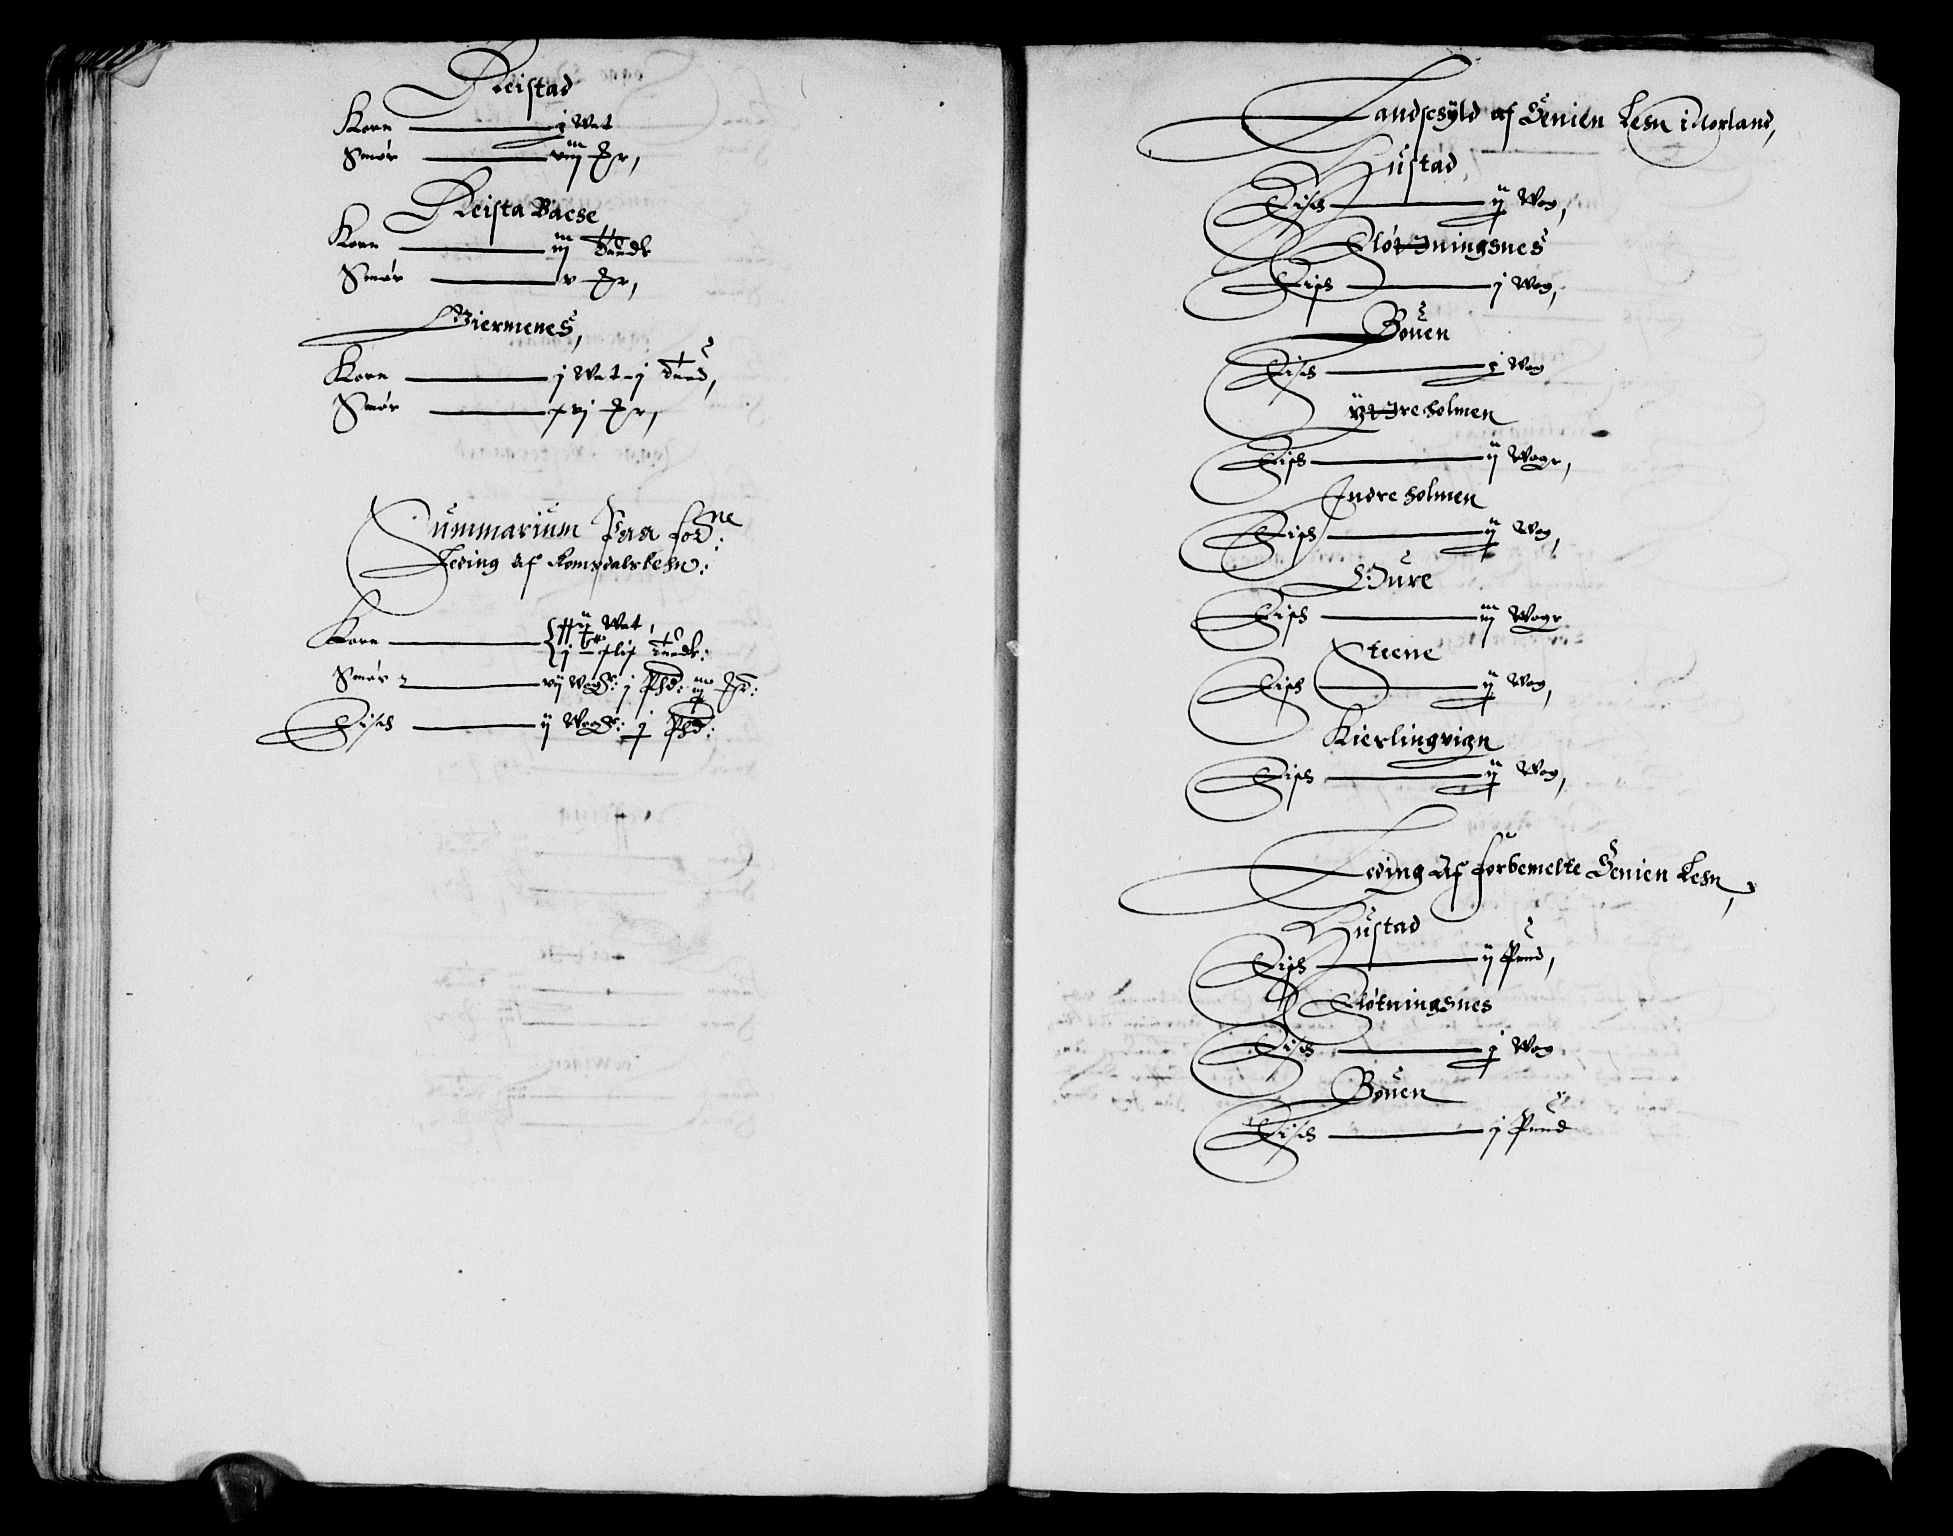 Reistad
Korn j Wet
Smør viij Pr,
Reista Backe
Korn iij tt Tunde
Smør v Pr,
Biermenes,
Korn j Wet j Tund,
Smør xvj Pr,
Summarium Paa forne:
Leding af Romsdals Lehn:
Korn Wet,
Tunde:
Smør vij Woger: j Phd: iij Pd:
Fisch ij Woger: j Phd:
Landschyld af Senien Lehn i Norland,
Hustad
Fisch ij Wog,
Fløtningsnes
Fisch j Wog,
Bouen
Fisch j Wog
Ytreholmen
Fisch ij Woge,
Indreholmen
Fisch ij Wog,
Oure
Fisch iij Woge
Steene
Fisch ij Wog,
Kierlingvign
Fisch ij Wog,
Leding Af forbemelte Senien Lehn,
Hustad
Fisch ij Pund,
Fløtningsnes
Fisch j Wog
Bouen
Fisch j Pund